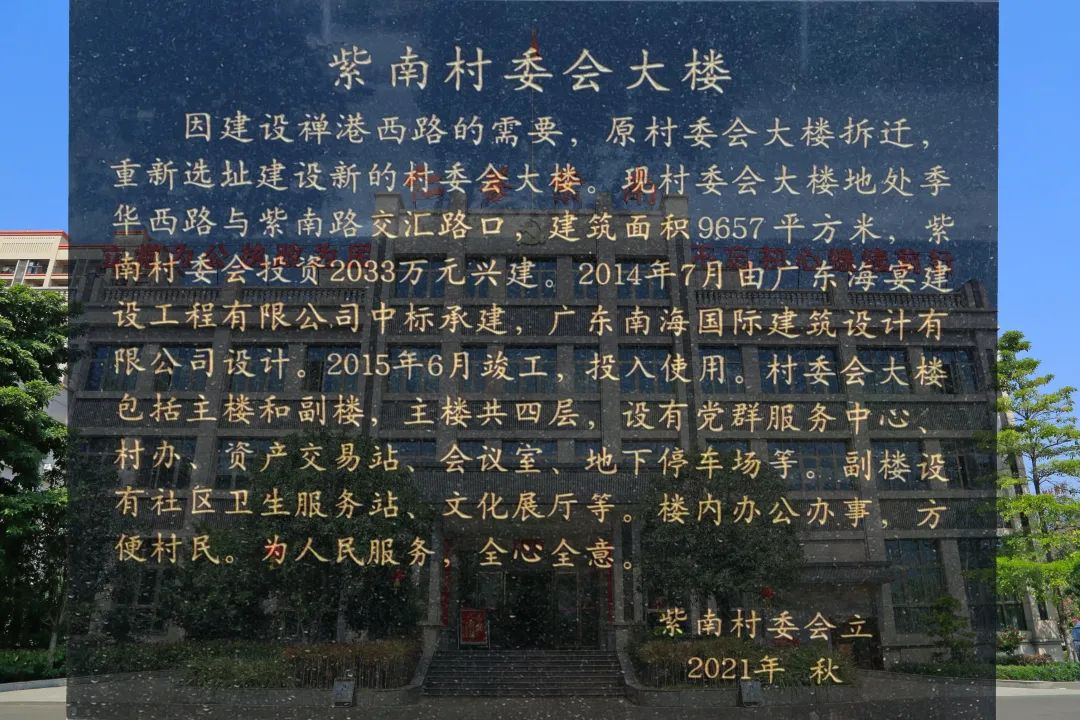 紫南村委会大楼
因建设禅港西路的需要，原村委会大楼拆迁，
重新选址建设新的村委会大楼。现村委会大楼地处季
华西路与紫南路交汇路口，建筑面积9657平方米，紫
南村委会投资2033万元兴建。2014年7月由广东海宴建
设工程有限公司中标承建，广东南海国际建筑设计有
限公司设计。2015年6月竣工，投入使用。村委会大楼
包括主楼和副楼，主楼共四层，设有党群服务中心、
村办、资产交易站、会议室、地下停车场等。副楼设
有社区卫生服务站、文化展厅等。楼内办公办事，方
便村民。为人民服务，全心全意。
紫南村委会立
2021年 秋